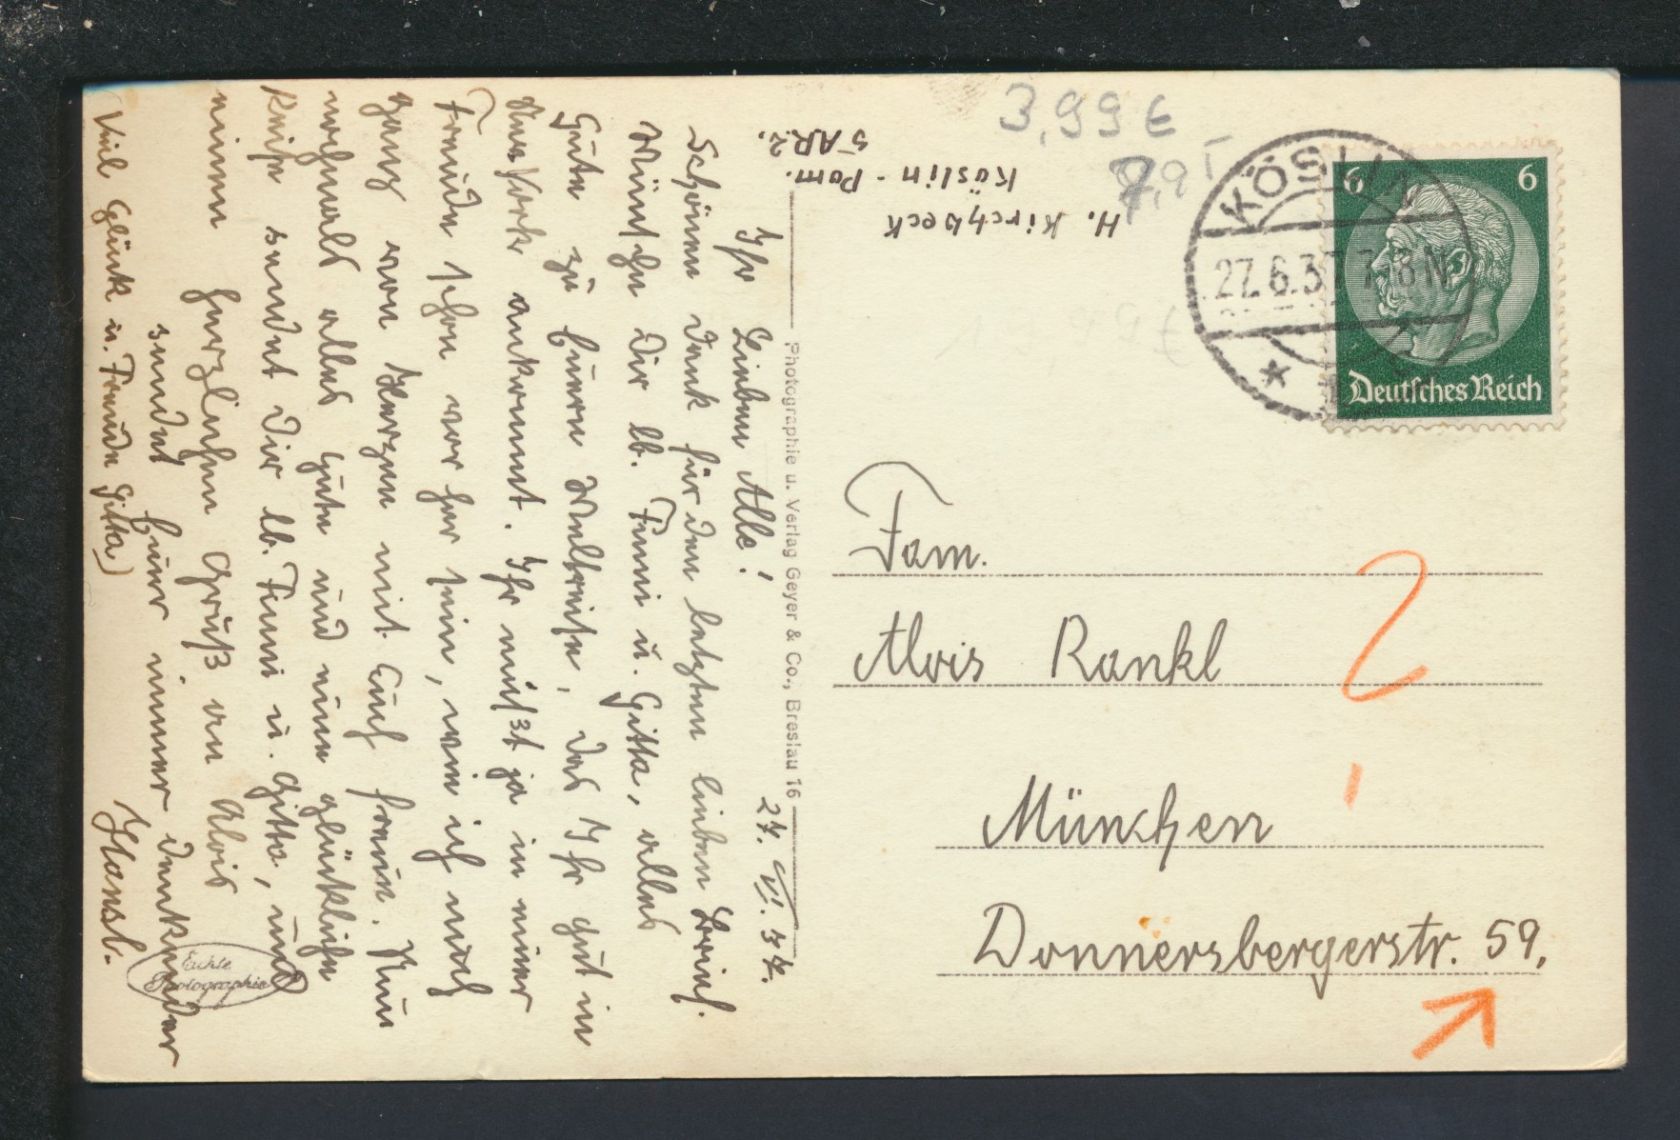 27. VI. 37.
Ihr Lieben Alle!
Schönen Dank für den letzten lieben Brief.
Wünsche Dir lb. Fanni u. Gitta, alles
Gute zu Eurer Weltreise, das Ihr gut in
Neu York ankommt. Ihr müsst ja in einer
Freude schon vorher sein, wenn ich noch
ganz von Herzen mit Euch freue. Nun
nochmals alles Gute und eine glückliche
Reise sendet Dir lb. Fanni u. Gitta, und
einen herzlichen Gruß an Alois
sendet Euer immer denkender
Hansl.
(Viel Glück u. Freude Gitta)
Echte
Photographie
Photographie u. Verlag Geyer & Co., Breslau 16
H. Kirchbeck
Köslin - Pom.
5 AR2.
3,99 €
KÖSLIN
27.6.37. 7-8 N
6 6
Deutsches Reich
Fam.
Alois Rankl
München
Donnersbergerstr. 59.
2